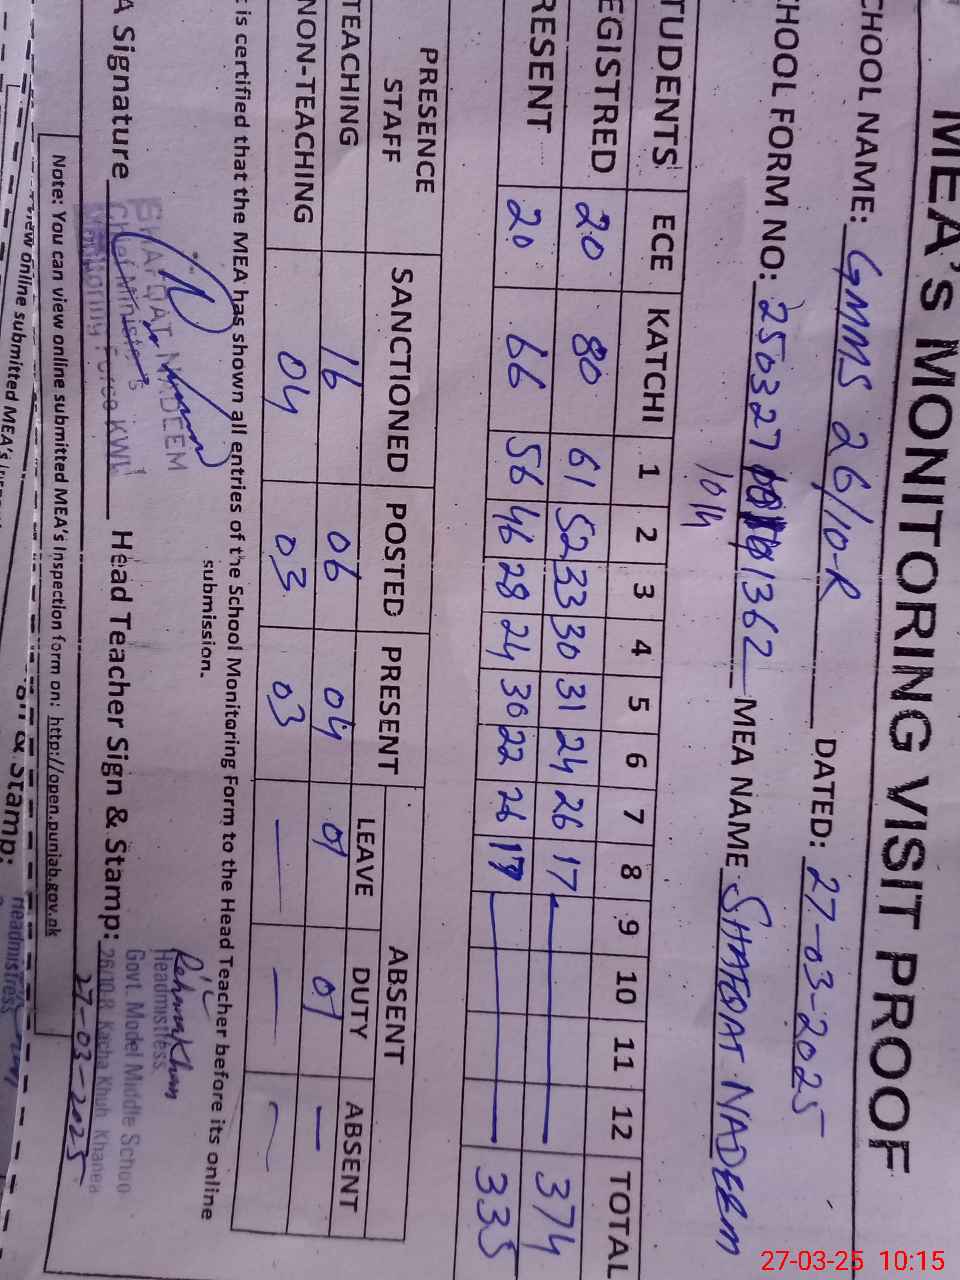 MEA's MONITORING VISIT PROOF
CHOOL NAME: GMMS 26/10-R DATED: 27-03-2025
CHOOL FORM NO: 250327 1362 MEA NAME SHAFQAT NADEEM
TUDENTS ECE KATCHI 1 2 3 4 5 6 7 8 9 10 11 12 TOTAL
EGISTRED 20 80 61 52 33 30 31 24 26 17 374
RESENT 20 66 56 46 28 24 30 22 26 17 335
PRESENCE STAFF SANCTIONED POSTED PRESENT ABSENT
LEAVE DUTY ABSENT
TEACHING 16 06 04 01 01 —
NON-TEACHING 04 03 03 — — —
is certified that the MEA has shown all entries of the School Monitoring Form to the Head Teacher before its online
submission.
SHAFQAT NADEEM
Chief Minister's
Monitoring Force KWL
Rehma Khan
Headmistress
Govt. Model Middle Schoo
A Signature Head Teacher Sign & Stamp: 26/10-R Kacha Khuh Khanea
27-03-2025
Note: You can view online submitted MEA's Inspection form on: http://open.punjab.gov.pk
view online submitted MEA's
Stamp:
Headmistress
27-03-25 10:15